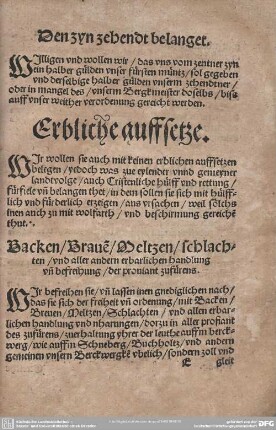 Den zyn zehendt belanget.
WJlligen vnd wollen wir / das vns vom zentner zyn
ein halber gulden vnser fursten muntz / sol gegeben
vnd derselbige halber gulden vnserm zehendtner /
oder in mangel des / vnserm Bergkmeister doselbs / bis
auff vnser weither verordenung gereicht werden.
Erbliche auffsetze.
WJr wollen sie auch mit keinen erblichen auffsetzen
beligen / jedoch was zue eylender vnnd gemeyner
landtvolge / auch Cristenliche hulff vnd rettung /
furfiele vn belangen thet / in dem sollen sie sich mit hulff-
lich vnd furderlich erzeigen / aus vrsachen / weil solchs
inen auch zu mit wolfarth / vnd beschirmung gereicht
thut.
Backen / Brauē / Meltzen / schlach-
ten / vnd aller andern erbarlichen handlung
vn befreihung / der prouiant zufurens.
WJr befreihen sie / vn lassen inen gnediglichen nach /
das sie sich der friheit vn ordenung / mit Backen /
Breuen / Meltzen / Schlachten / vnd allen erbar-
lichen handlung vnd nharungen / dorzu in aller profiant
des zufurens / zuerhaltung yhrer der leuthe auffm berck-
werg / wie auffm Schnebergk / Buchholtz / vnd andern
gemeinen vnsern Berckwergkē vbelich / sondern zoll vnd
E gleit